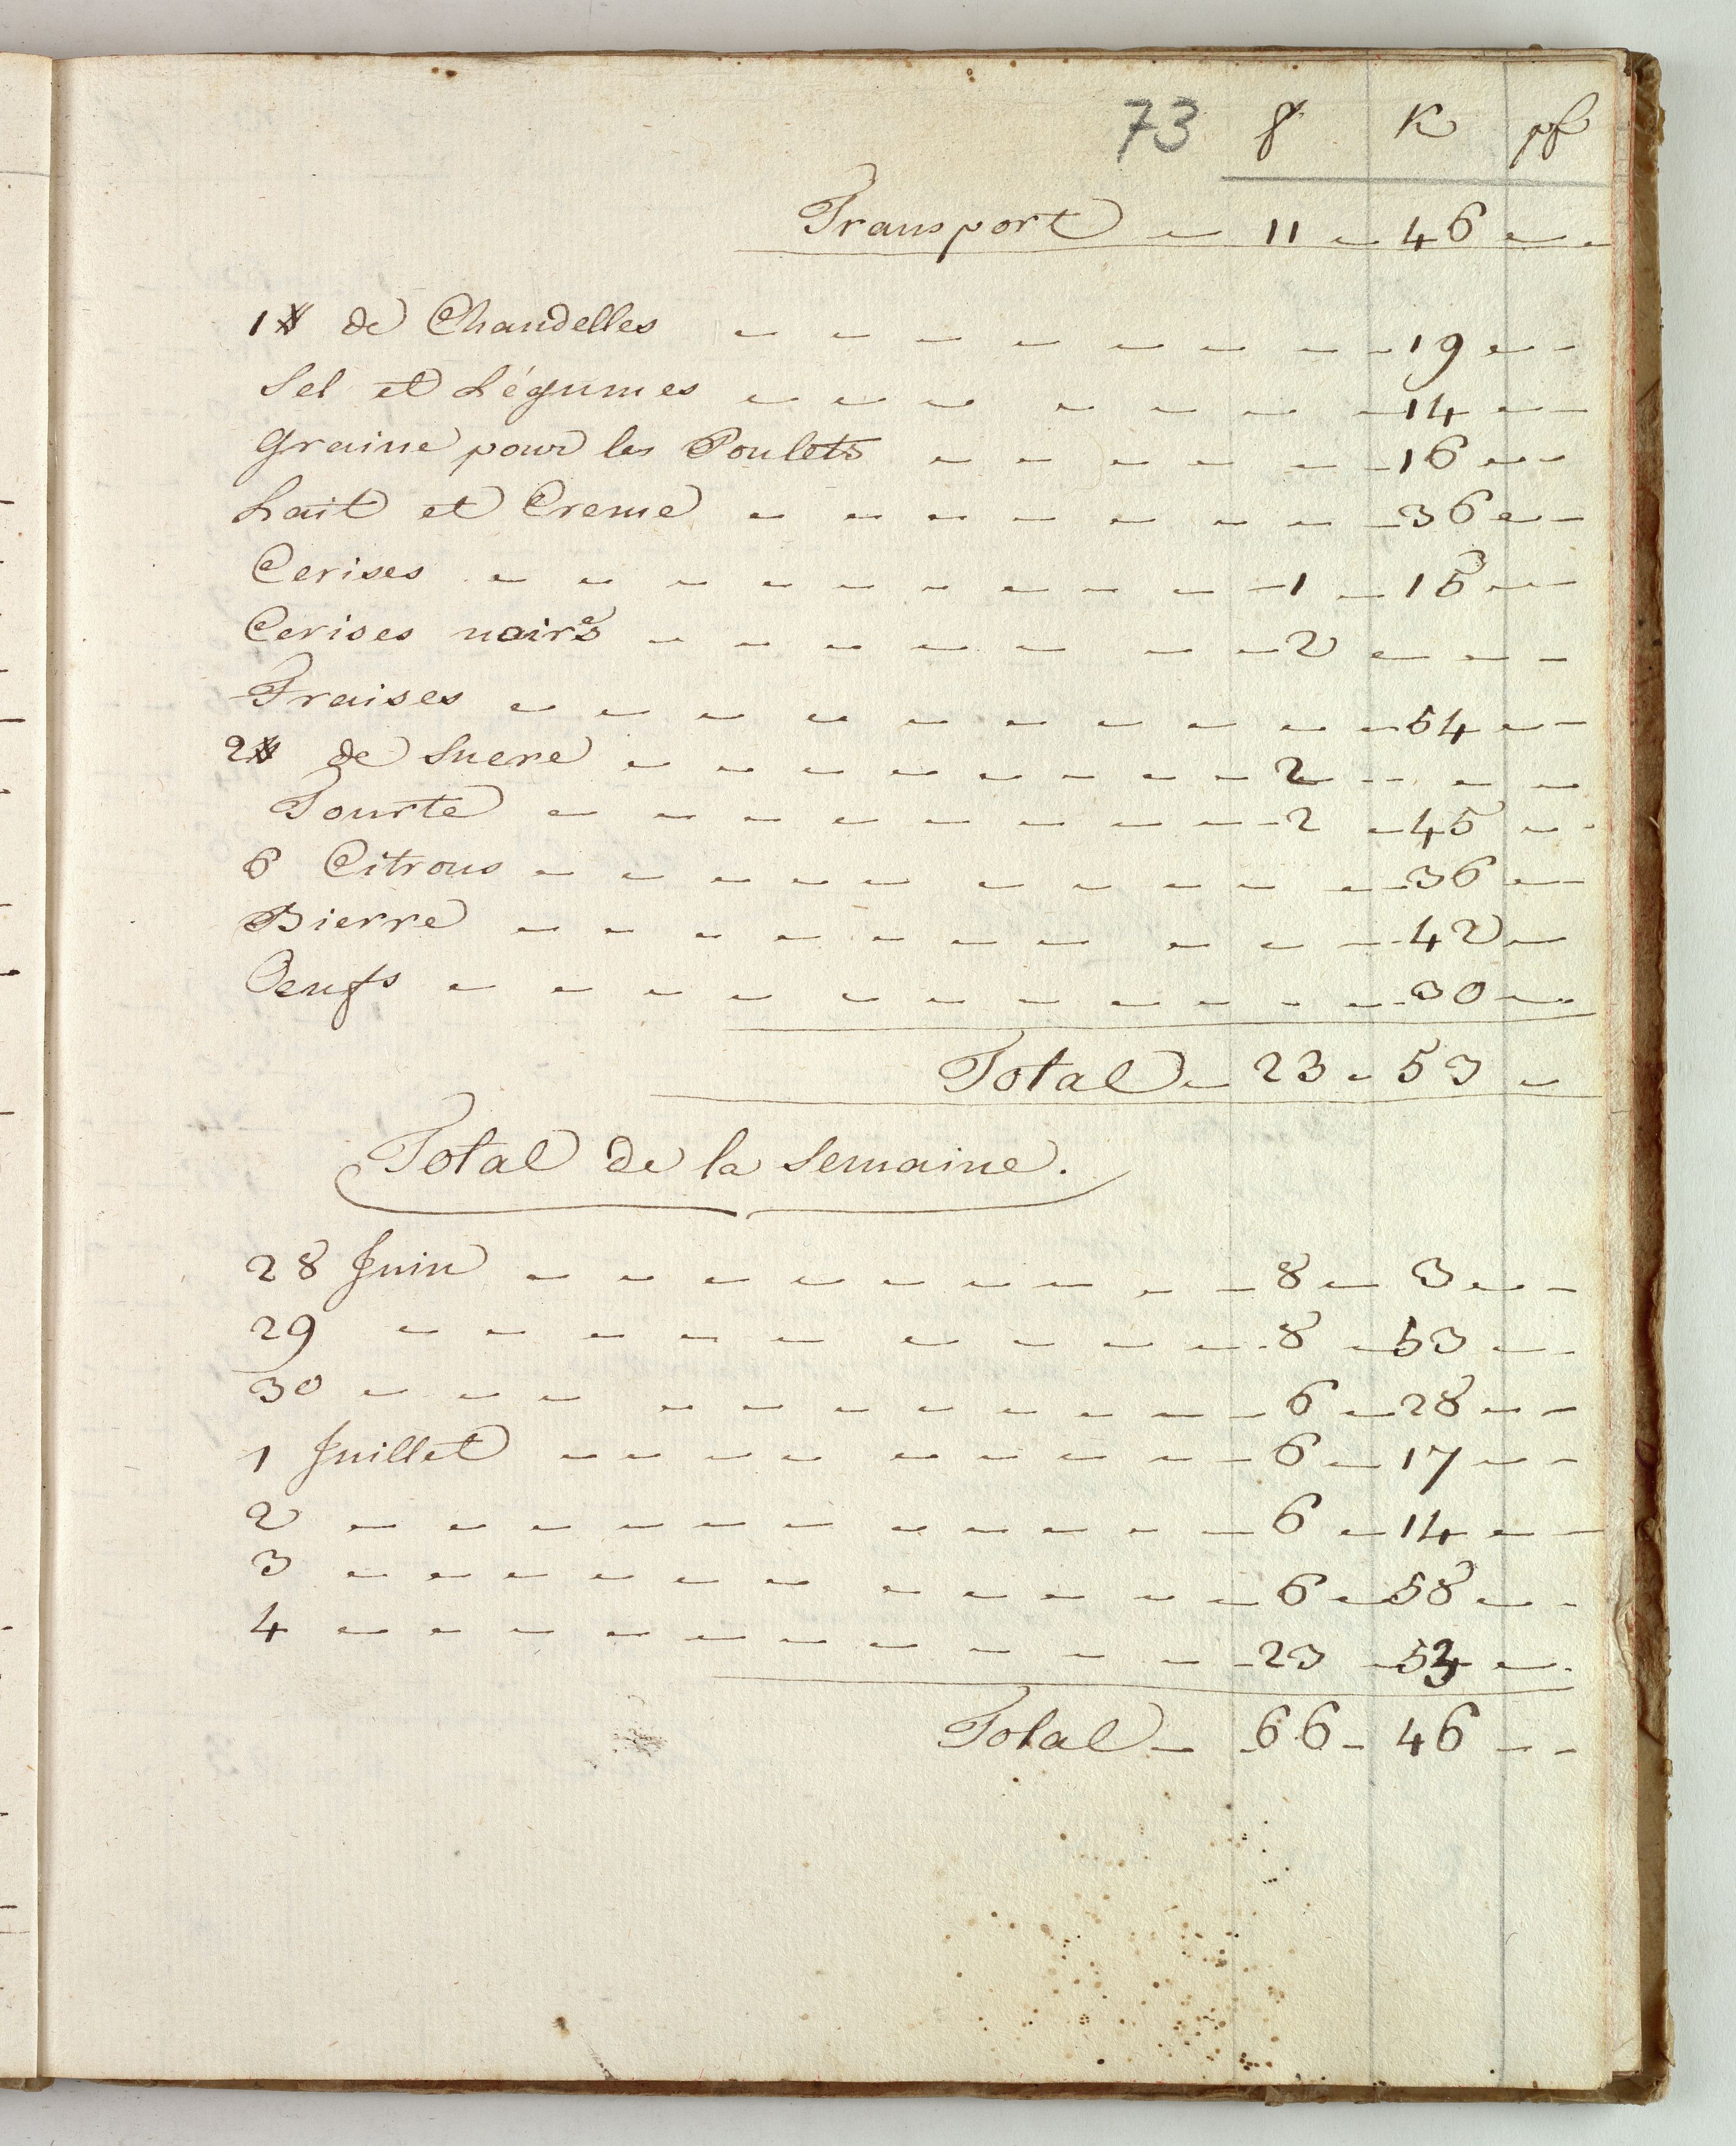 73 f K pf
Transport 11 46
1 ℔ de Chandelles 19
Sel et Légumes 14
Graine pour les Poulets 16
Lait et Creme 36
Cerises 1 15
Cerises noires 2
Fraises 54
2 ℔ de Sucre 2
Tourte 2 45
6 Citrons 36
Bierre 42
Oeufs 30
Total 23 53
Total de la Semaine.
28 Juin 8 3
29 8 53
30 6 28
1 Juillet 6 17
2 6 14
3 6 58
4 23 53
Total 66 46